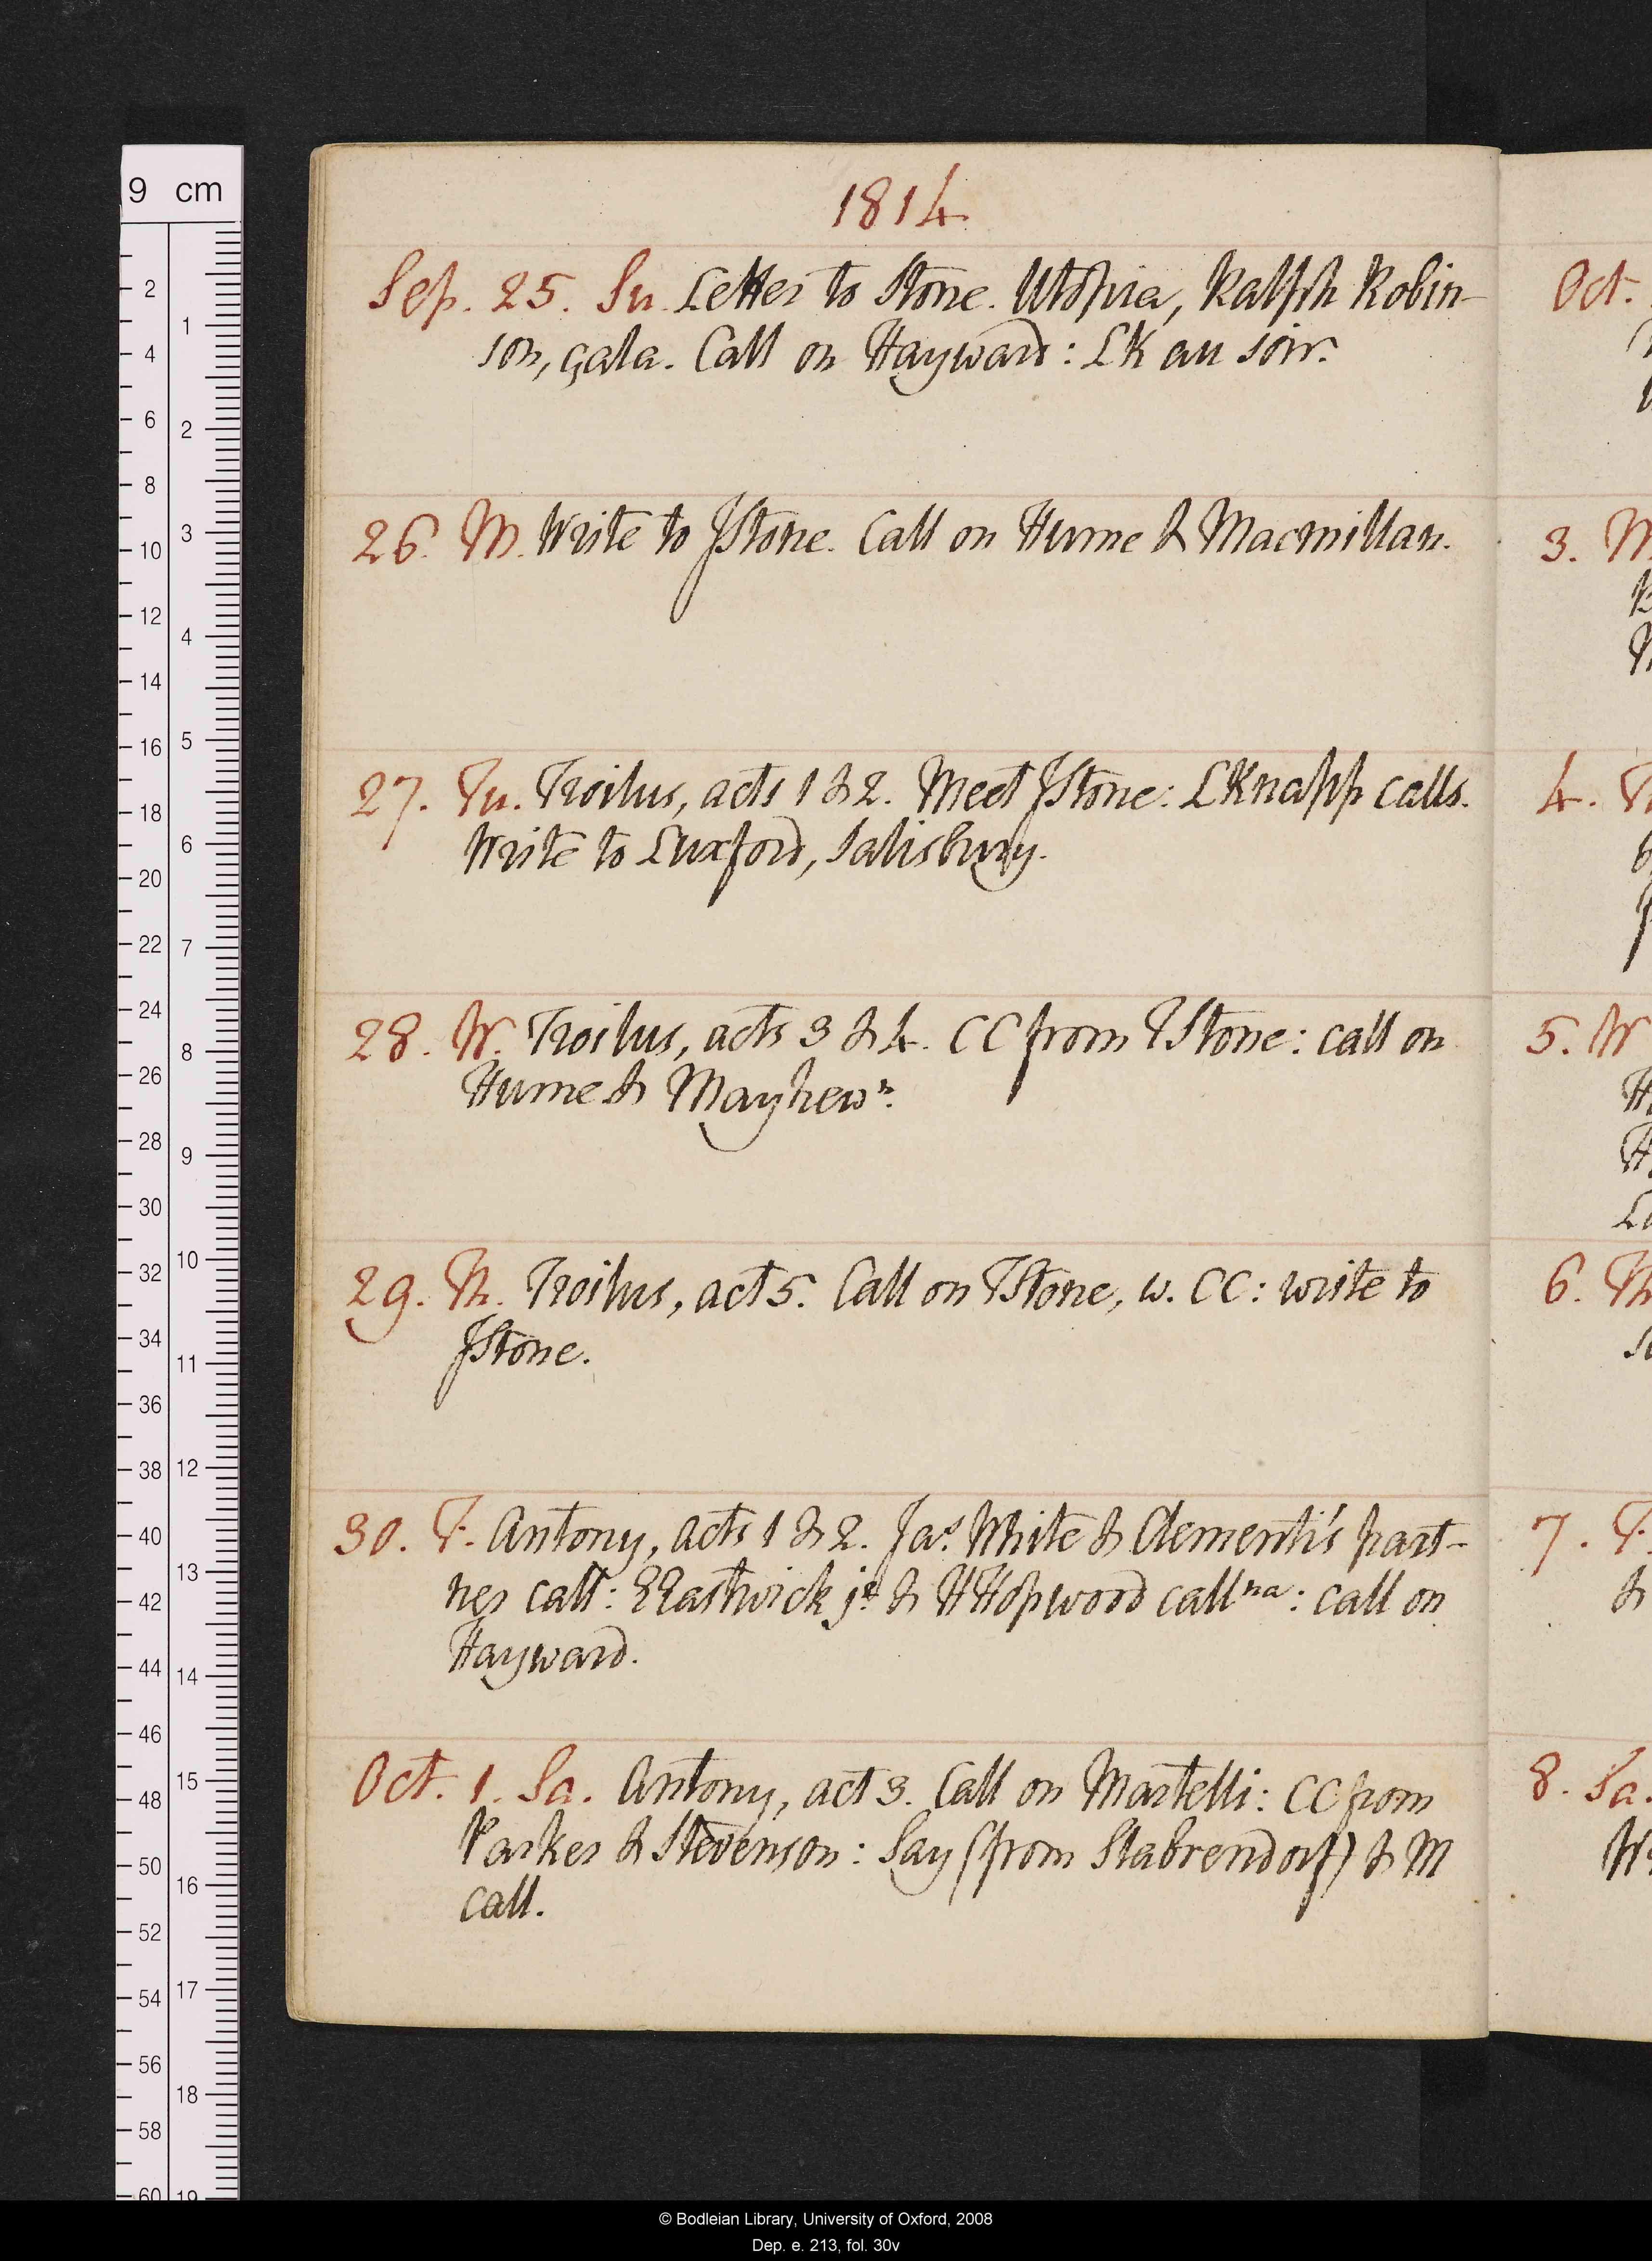 1814
Sep. 25. Su. Letter to Stone. Utopia, Ralph Robin-
son, çala. Call on Hayward: LK au soir.
26. M. Write to JStone. Call on Hume & Macmillan.
27. Tu. Troilus, acts 1 & 2. Meet JStone: LKnapp calls.
Write to Luxford, Salisbury.
28. W. Troilus, acts 3 & 4. CC from TStone: call on
Hume & Mayhew n.
29. Th. Troilus, act 5. Call on TStone, w. CC: write to
JStone.
30. F. Antony, acts 1 & 2. Jas. White & Clementi's part-
ner call: EEastwick jr & HHopwood call na: call on
Hayward.
Oct. 1. Sa. Antony, act 3. Call on Martelli: CC from
Parker & Stevenson: Say (from Slabrendorf) & M
call.
Oct.
3. M
4. T
5. W
6. Th
7. F.
&
8. Sa.
9 cm
2
4
6
8
10
12
14
16
18
20
22
24
26
28
30
32
34
36
38
40
42
44
46
48
50
52
54
56
58
60
1
2
3
4
5
6
7
8
9
10
11
12
13
14
15
16
17
18
19
© Bodleian Library, University of Oxford, 2008
Dep. e. 213, fol. 30v